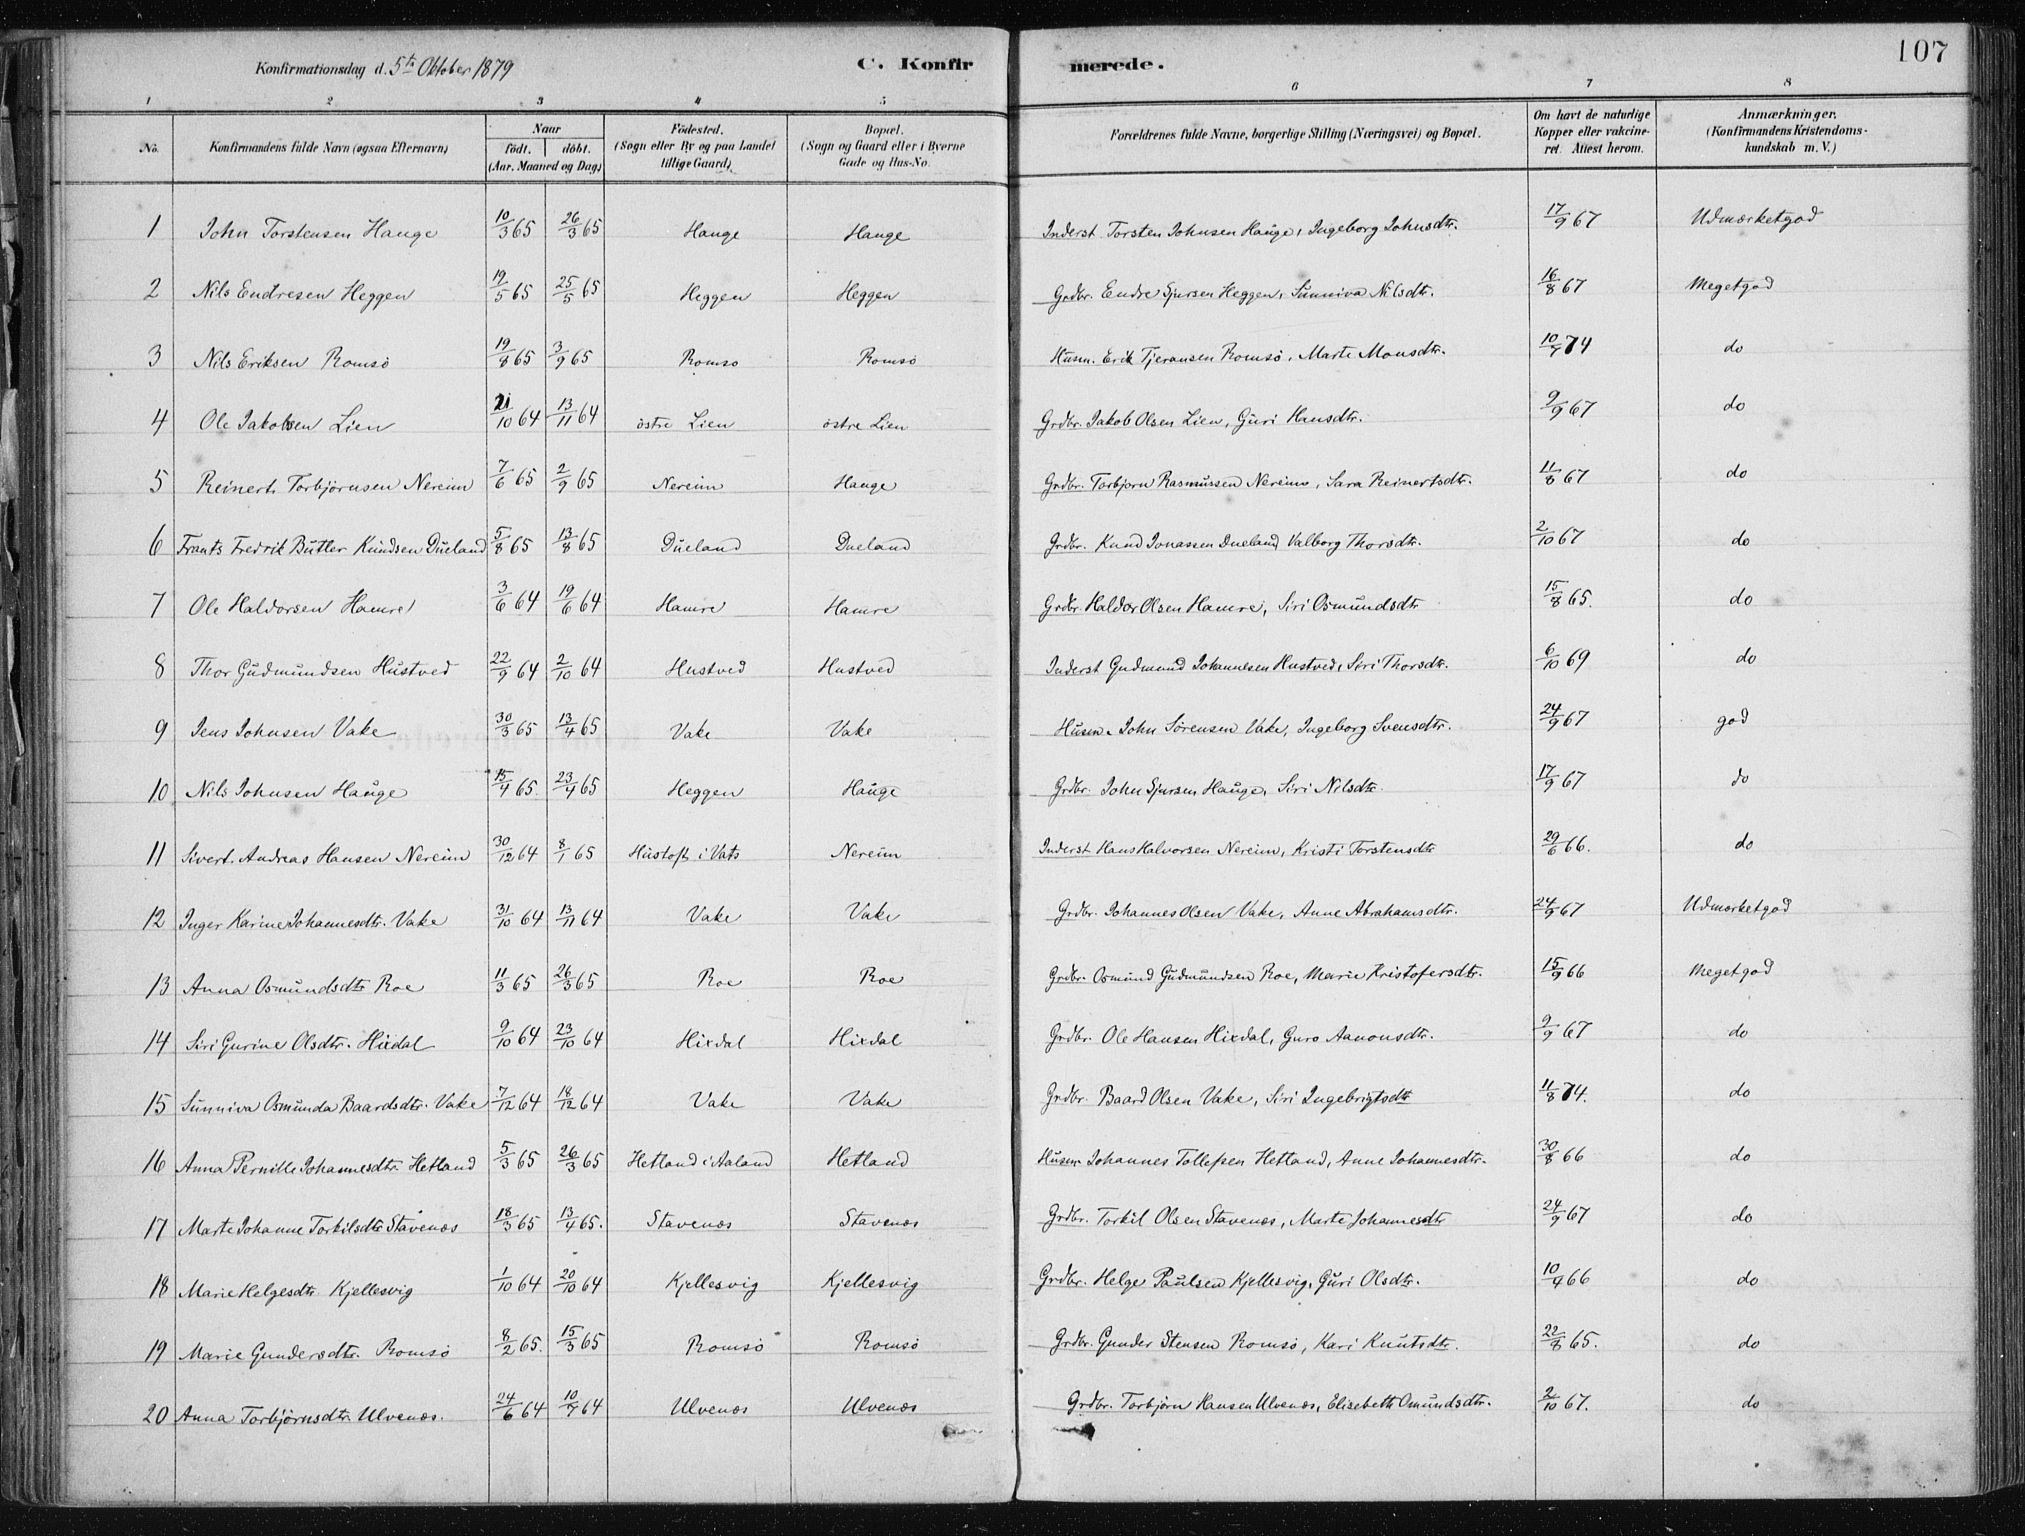 107
Konfirmationsdag d. 5te Oktober 1879 C. Konfirmerede.
1 2 3 4 5 6 7 8
No. Konfirmandens fulde Navn (ogsaa Efternavn) Naar födt. döbt. (Aar. Maaned og Dag) Födested. (Sogn eller By og paa Landet tillige Gaard) Bopæl. (Sogn og Gaard eller i Byerne Gade og Hus-No. Forældrenes fulde Navne, borgerlige Stilling (Næringsvei) og Bopæl. Om havt de naturlige Kopper eller vakcineret. Attest herom. Anmærkninger. (Konfirmandens Kristendomskundskab m. V.)
1 John Torstensen Hauge 10/3 65 26/3 65 Hauge Hauge Inderst Torsten Johnsen Hauge, Ingeborg Johnsdtr. 17/9 67 Udmærketgod
2 Nils Endresen Heggen 19/5 65 25/5 65 Heggen Heggen Grdbr. Endre Sjursen Heggen, Sunniva Nilsdtr. 16/8 67 Megetgod
3 Nils Eriksen Romsö 19/8 65 3/9 65 Romso Romsö Husm. Erik Tjeransen Romsö, Marte Monsdtr. 10/7 74 do
4 Ole Jakobsen Lien 21/10 64 13/11 64 östre Lien östre Lien Grdbr. Jakob Olsen Lien, Guri Hansdtr. 9/9 67 do
5 Reinert Torbjörnsen Nereim 7/6 65 2/9 65 Nereim Hauge Grdbr. Torbjorn Rasmussen Nereim, Sara Reinertsdtr. 11/8 67 do
6 Frants Fredrik Butler Knudsen Dueland 5/8 65 13/8 65 Dueland Dueland Grdbr. Knud Jonassen Dueland, Valborg Thorsdtr. 2/10 67 do
7 Ole Haldorsen Hamre 3/6 64 19/6 64 Hamre Hamre Grdbr. Haldor Olsen Hamre, Siri Osmundsdtr 15/8 65. do
8 Thor Gudmundsen Hustved 22/9 64 2/10 64 Hustved Hustved Inderst Gudmund Johannesen Hustved, Siri Thorsdtr. 6/10 69 do
9 Jens Johnsen Vake 30/3 65 13/4 65 Vake Vake Husm. John Sörensen Vake, Ingeborg Svensdtr. 24/9 67 god
10 Nils Johnsen Hauge 15/4 65. 23/4 65 Heggen Hauge Grdbr. John Sjursen Hauge, Siri Nilsdtr. 17/9 67 do
11 Sivert Andreas Hansen Nereim 30/12 64 8/1 65 Hustoft i Vats Nereim Inderst Hans Halvorsen Nereim, Kristi Torstensdtr 29/6 66. do
12 Inger Karine Johannesdtr. Vake 31/10 64 13/11 64 Vake Vake Grdbr. Johannes Olsen Vake, Anne Abrahamsdtr. 24/9 67 Udmærketgod
13 Anna Osmundsdtr Roe 11/3 65 26/3 65 Roe Roe Grdbr. Osmund Gudmundsen Roe, Marie Kristofersdtr. 15/9 66 Megetgod
14 Siri Gurine Olsdtr. Hixdal 9/10 64 23/10 64 Hixdal Hixdal Grdbr. Ole Hansen Hixdal, Guro Aanonsdtr. 9/9 67 do
15 Sunniva Osmunda Baardsdtr. Vake 7/12 64 18/12 64 Vake Vake Grdbr. Baard Olsen Vake, Siri Ingebrigtsdtr 11/8 74. do
16 Anna Pernille Johannesdtr Hetland 5/3 65 26/3 65 Hetland i Aaland Hetland Husm. Johannes Tollefsen Hetland, Anne Johannesdtr. 30/8 66 do
17 Marte Johanne Torkilsdtr Stavenæs 18/3 65 13/4 65. Stavenæs Stavenæs Grdbr. Torkil Olsen Stavenæs, Marte Johannesdtr 24/9 67 do
18 Marie Helgesdtr Kjellesvig 1/10 64 20/10 64 Kjellesvig Kjellesvig Grdbr. Helge Paulsen Kjellesvig, Guri Olsdtr. 10/9 66 do
19 Marie Gundersdtr. Romsö 8/2 65. 15/3 65 Romsö Romsö Grdbr. Gunder Stensen Romsö, Kari Knutsdtr. 22/8 65. do
20 Anna Torbjörnsdtr Ulvenæs. 24/6 64 10/7 64 Ulvenæs Ulvenæs Grdbr. Torbjörn Hansen Ulvenæs, Elisabeth Omundsdtr. 2/10 67. do